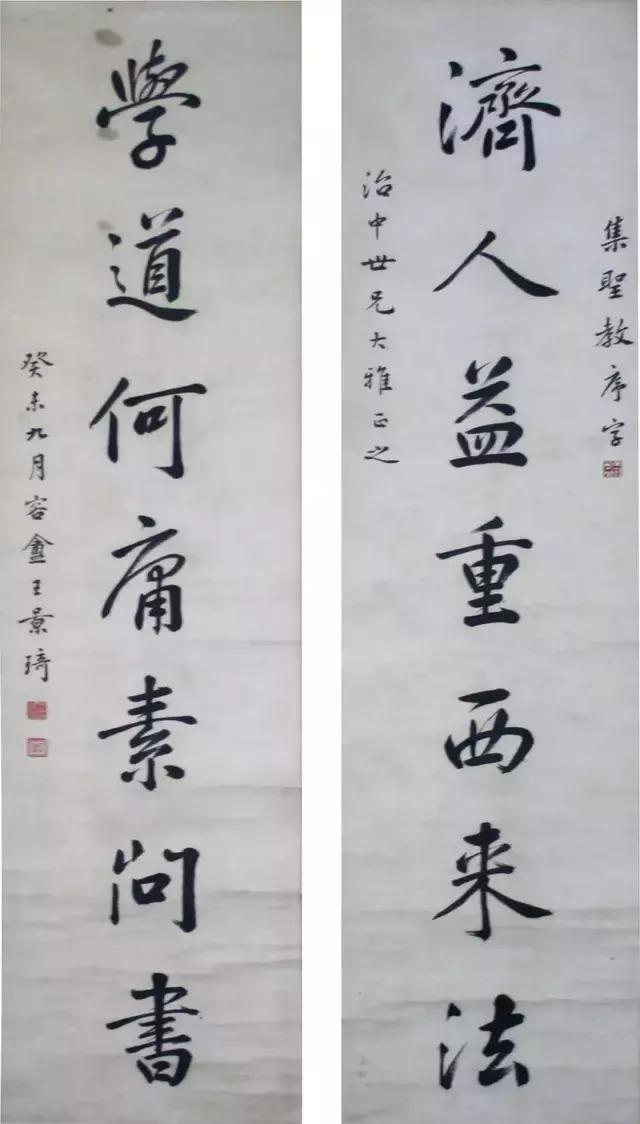 集聖教序字
濟人益重西来法
治中世兄大雅正之
學道何庸素問書
癸未九月容盦王景琦